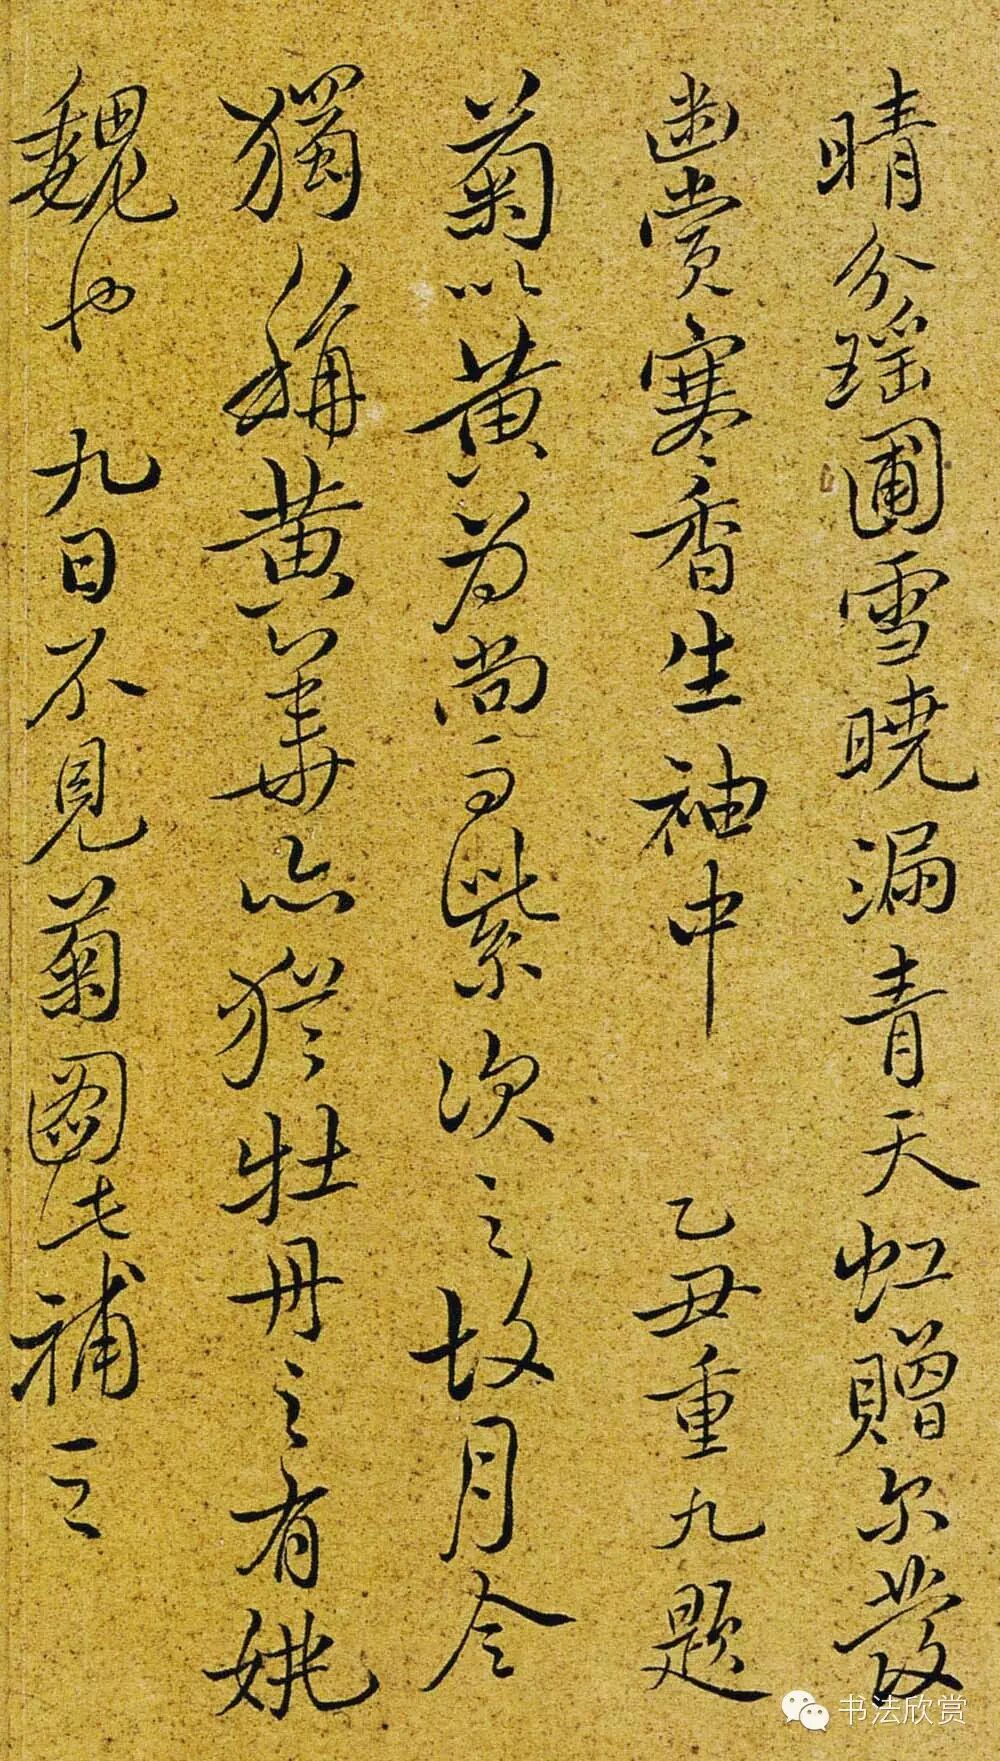 晴分瑶圃雪曉漏青天虹贈尔發
幽賞寒香生袖中 乙丑重九題
菊以黄為尚而紫次之故月令
獨稱黄華亦猶牡丹之有姚
魏也 九日不見菊圖此補之
书法欣赏